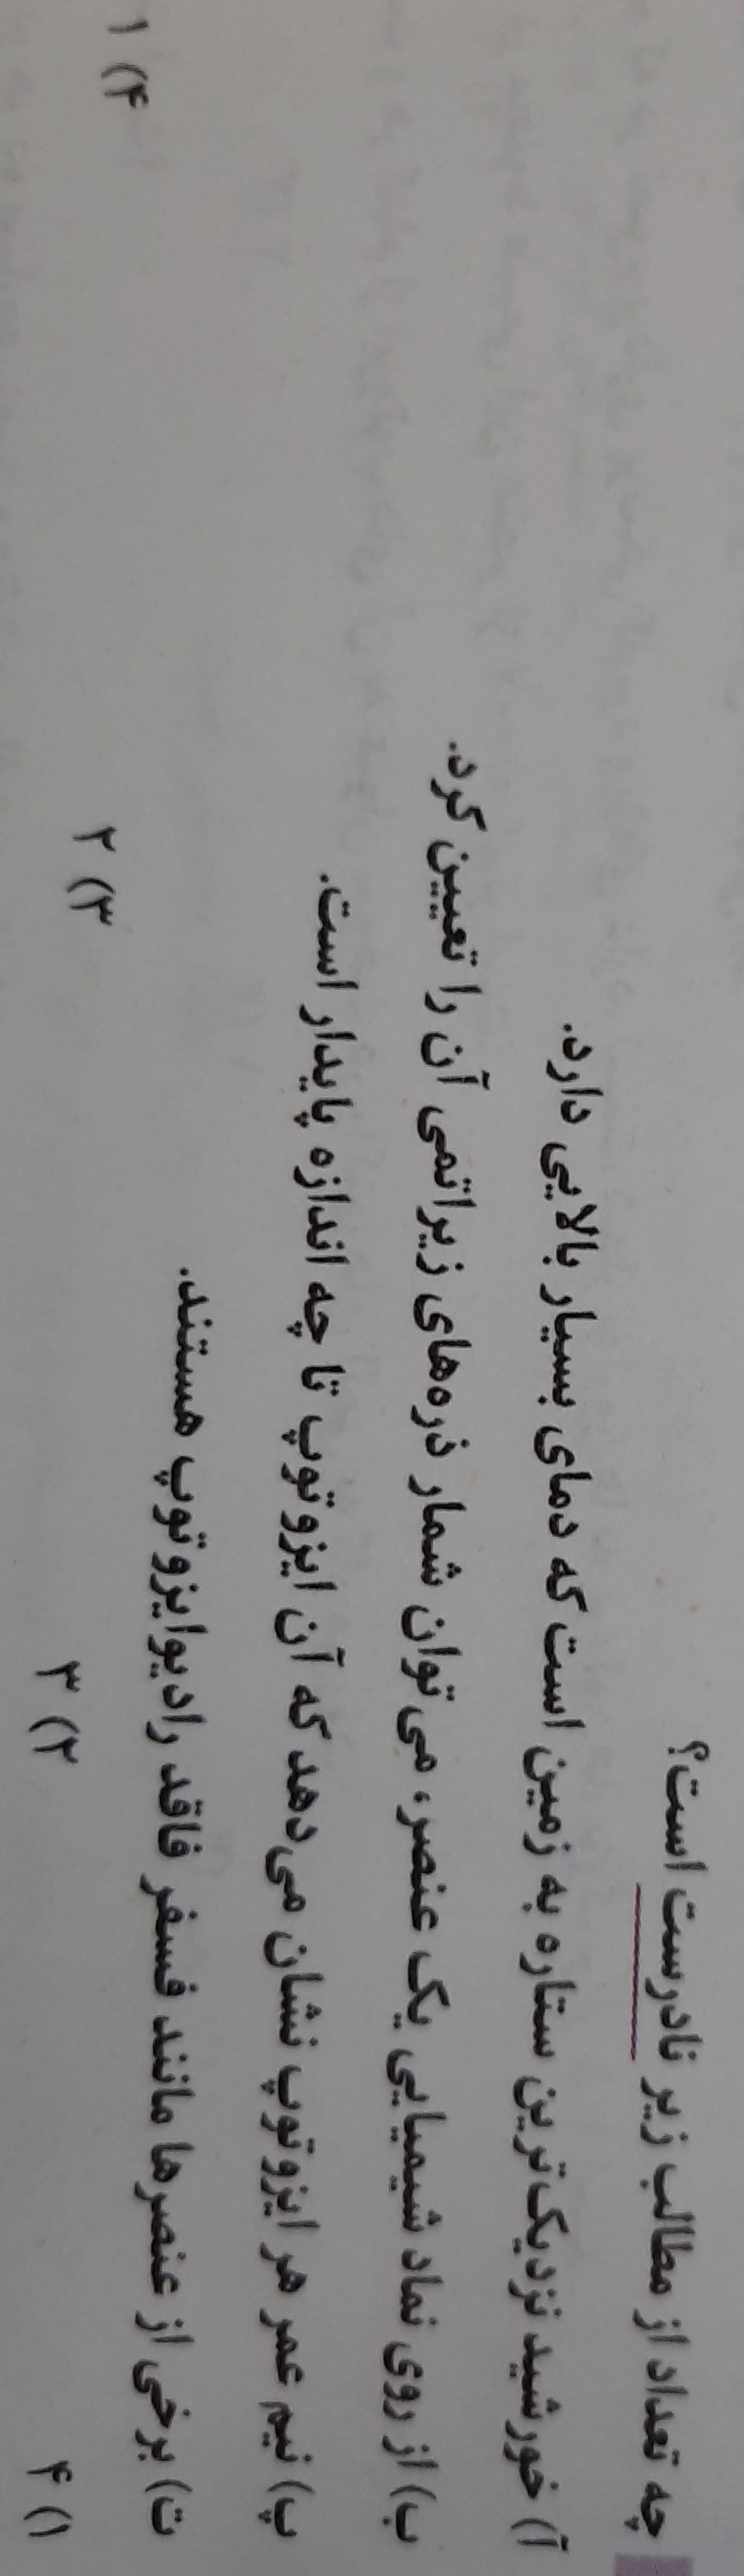 چه تعداد از مطالب زیر نادرست است؟
آ) خورشید نزدیک‌ترین ستاره به زمین است که دمای بسیار بالایی دارد.
ب) از روی نماد شیمیایی یک عنصر، می‌توان شمار ذره‌های زیراتمی آن را تعیین کرد.
پ) نیم عمر هر ایزوتوپ نشان می‌دهد که آن ایزوتوپ تا چه اندازه پایدار است.
ت) برخی از عنصرها مانند فسفر فاقد رادیوایزوتوپ هستند.
۱) ۴ ۲) ۳ ۳) ۲ ۴) ۱